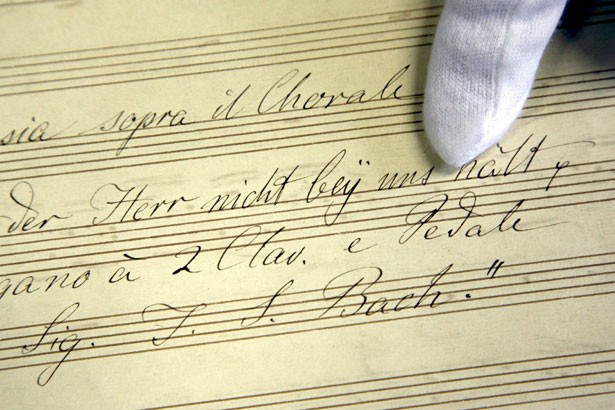 sia sopra il Chorale
der Herr nicht beÿ uns hält,
gano à 2 Clav. e Pedale
Sig. J. S. Bach."